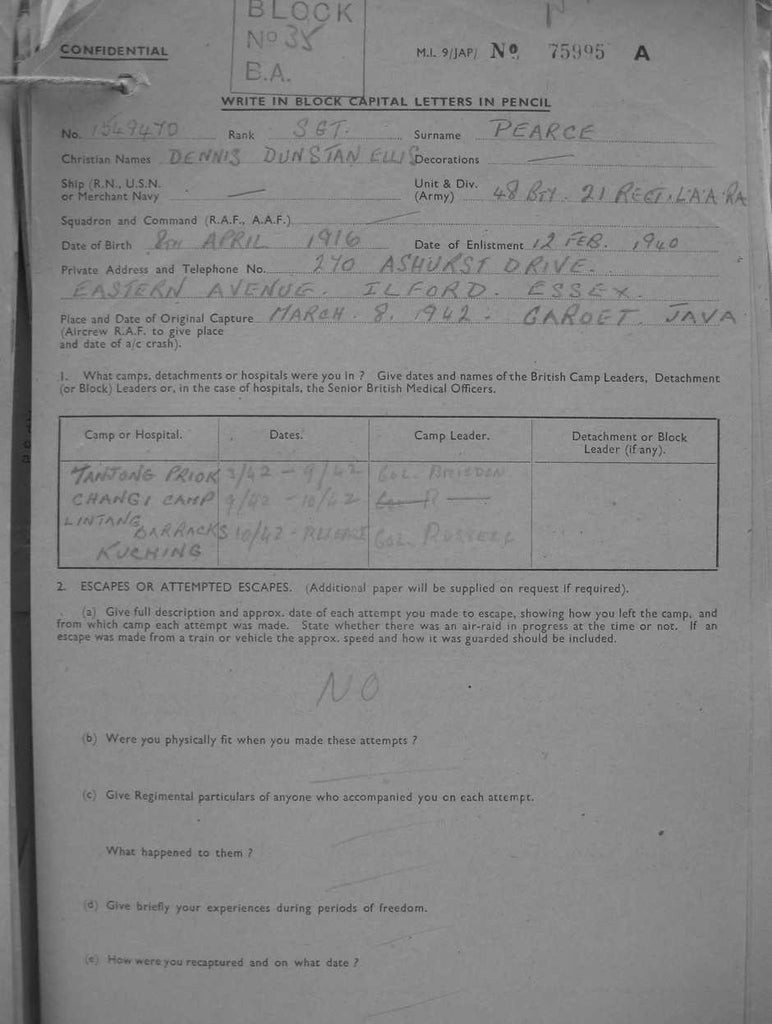 BLOCK
Nº 38
B.A.
CONFIDENTIAL
M.I. 9/JAP/ Nº 75995 A
WRITE IN BLOCK CAPITAL LETTERS IN PENCIL
No. 1549470 Rank SGT. Surname PEARCE
Christian Names DENNIS DUNSTAN ELLIS Decorations —
Ship (R.N., U.S.N.
or Merchant Navy —
Unit & Div.
(Army) 48 BTY. 21 REGT. L.A.A. RA
Squadron and Command (R.A.F., A.A.F.) —
Date of Birth 8TH APRIL 1916 Date of Enlistment 12 FEB. 1940
Private Address and Telephone No. 270 ASHURST DRIVE.
EASTERN AVENUE. ILFORD. ESSEX.
Place and Date of Original Capture MARCH. 8. 1942. GAROET. JAVA
(Aircrew R.A.F. to give place
and date of a/c crash).
1. What camps, detachments or hospitals were you in ? Give dates and names of the British Camp Leaders, Detachment
(or Block) Leaders or, in the case of hospitals, the Senior British Medical Officers.
Camp or Hospital. Dates. Camp Leader. Detachment or Block
Leader (if any).
TANJONG PRIOK 3/42 – 9/42 COL.
CHANGI CAMP 9/42 – 10/42
LINTANG
BARRACKS 10/42 - RELEASE COL. RUSSELL
KUCHING
2. ESCAPES OR ATTEMPTED ESCAPES. (Additional paper will be supplied on request if required).
(a) Give full description and approx. date of each attempt you made to escape, showing how you left the camp, and
from which camp each attempt was made. State whether there was an air-raid in progress at the time or not. If an
escape was made from a train or vehicle the approx. speed and how it was guarded should be included.
NO
(b) Were you physically fit when you made these attempts ?
(c) Give Regimental particulars of anyone who accompanied you on each attempt.
What happened to them ?
(d) Give briefly your experiences during periods of freedom.
(e) How were you recaptured and on what date ?